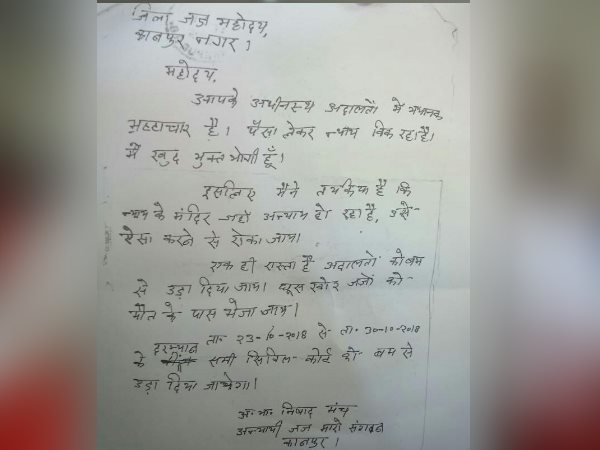 जिला जज महोदय,
कानपुर नगर।
महोदय,
आपके अधीनस्थ अदालतों में भयानक
भ्रष्टाचार है। पैसा लेकर न्याय बिक रहा है।
मैं खुद भुक्त भोगी हूँ।
इसलिए मैंने तय किया है कि
न्याय के मंदिर जहाँ अन्याय हो रहा है, उसे
ऐसा करने से रोका जाय।
एक ही रास्ता है अदालतों को बम
से उड़ा दिया जाय। घूस खोर जजों को
मौत के पास भेजा जाय।
ता॰ 23-10-2018 से ता॰ 30-10-2018
के दरम्यान सभी सिविल कोर्ट को बम से
उड़ा दिया जायेगा।
अ॰ भा॰ निषाद मंच
अन्यायी जज मारो संगठन
कानपुर।